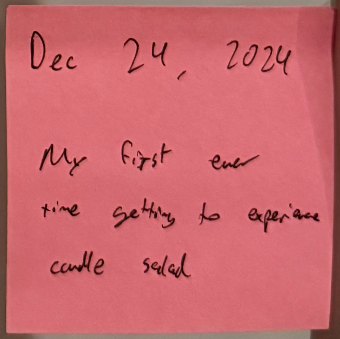 Dec 24, 2024
My first ever
time getting to experience
candle salad